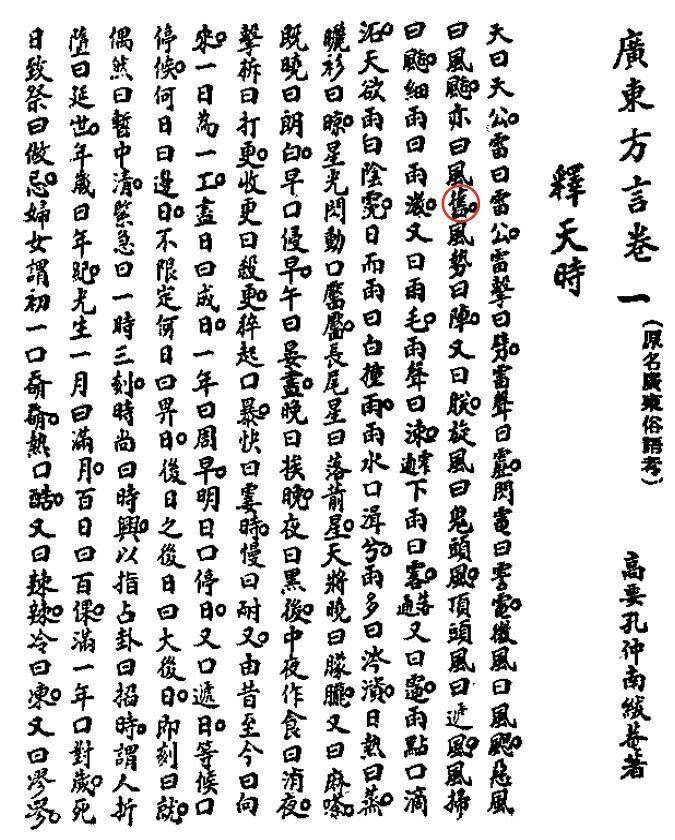 廣東方言卷一
(原名廣東俗語考)
高要孔仲南緘菴著
釋天時
天曰天公雷曰雷公雷擊曰劈雷聲曰靂閃電曰電微風曰風颸急風
曰風颸亦曰風舊風勢曰陣又曰朕旋風曰鬼頭風頂頭風曰遞風風掃
曰細雨曰雨濊又曰雨毛雨聲曰涑下雨曰又曰雨點口滴
沰天欲雨曰陰霃日而雨曰白撞雨雨水口湒兮雨多曰涔漬日熱曰蒸
曬衫曰晾星光閃動口長尾星曰落箭星天將曉曰朦朧又曰麻嗏
既曉曰朗白早口侵早午曰晏晝晚曰挨晚夜曰黑後中夜作食曰消夜
擊柝曰打更收更曰殺更猝起口暴快曰霎時慢曰耐又由昔至今曰向
來一日為一工盡日曰成日一年曰周早明日口停日又口遞日等候口
停候何日曰邊日不限定何日曰畀日後日之後日曰大後日即刻曰就
偶然曰暫中清緊急曰一時三刻時尚曰時興以指占卦曰掐時謂人折
墮曰延世年歲曰年紀先生一月曰滿月百日曰百倮滿一年口對歲死
日致祭曰做忌婦女謂初一口奇奇熱口酷又曰辣辣冷曰凍又曰漻漻